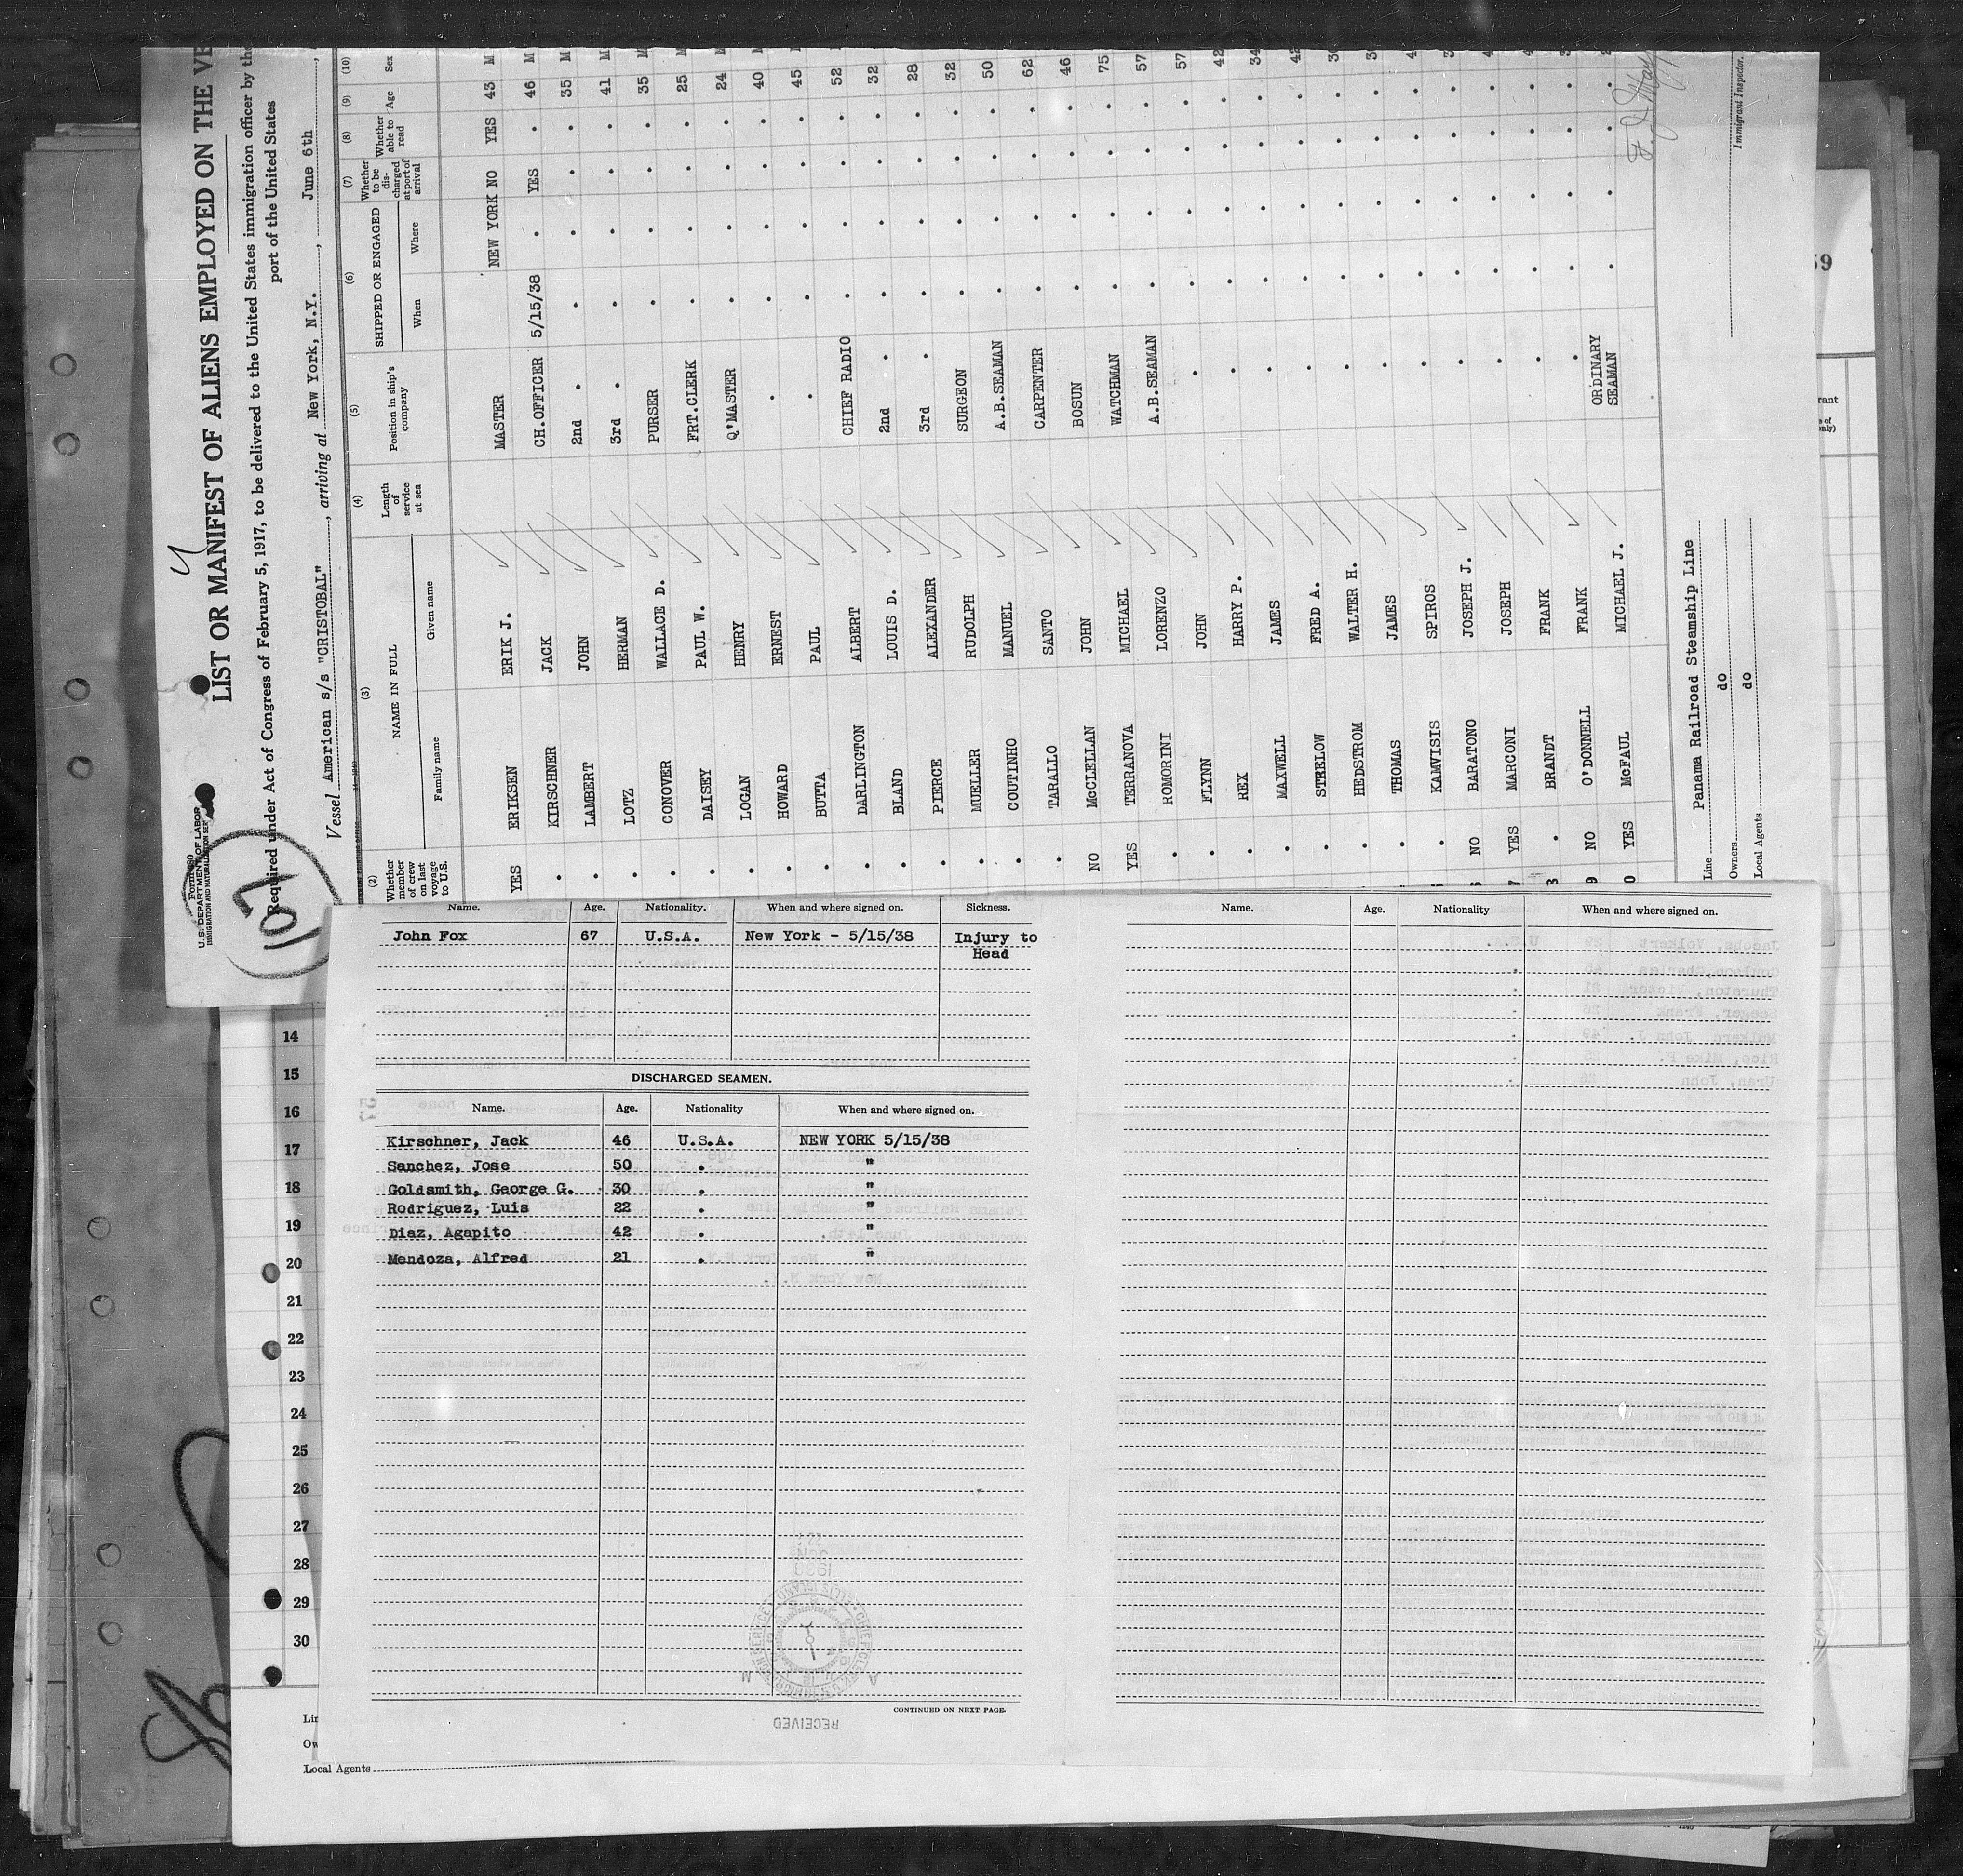 Form 680
U.S. DEPARTMENT OF LABOR
IMMIGRATION AND NATURALIZATION SERVICE
107
LIST OR MANIFEST OF ALIENS EMPLOYED ON THE VE
Required under Act of Congress of February 5, 1917, to be delivered to the United States immigration officer by the
port of the United States
Vessel American s/s "CRISTOBAL", arriving at New York, N.Y., June 6th,
(2) (3) (4) (5) (6) (7) (8) (9) (10)
Whether member of crew on last voyage to U.S.
NAME IN FULL
Family name Given name
Length of service at sea
Position in ship's company
SHIPPED OR ENGAGED
When Where
Whether to be discharged at port of arrival
Whether able to read
Age Sex
YES ERIKSEN ERIK J. MASTER NEW YORK NO YES 43 M
. KIRSCHNER JACK CH.OFFICER 5/15/38 . YES . 46 M
. LAMBERT JOHN 2nd . . . . 35 M
. LOTZ HERMAN 3rd . . . . 41 M
. CONOVER WALLACE D. PURSER . . . . 35 M
. DAISEY PAUL W. FRT.CLERK . . . . 25 M
. LOGAN HENRY Q'MASTER . . . . 24 M
. HOWARD ERNEST . . . . . 40
. BUTTA PAUL . . . . . 45
. DARLINGTON ALBERT CHIEF RADIO . . . . 52
. BLAND LOUIS D. 2nd . . . . 32
. PIERCE ALEXANDER 3rd . . . . 28
. MUELLER RUDOLPH SURGEON . . . . 32
. COUTINHO MANUEL A.B.SEAMAN . . . . 50
. TARALLO SANTO CARPENTER . . . . 62
NO McCLELLAN JOHN BOSUN . . . . 46
YES TERRANOVA MICHAEL WATCHMAN . . . . 75
. ROMORINI LORENZO A.B.SEAMAN . . . . 57
. FLYNN JOHN . . . . . 57
. REX HARRY P. . . . . . 42
. MAXWELL JAMES . . . . . 34
. STRELOW FRED A. . . . . . 42
. HEDSTROM WALTER H. . . . . .
. THOMAS JAMES . . . . .
. KAMVISIS SPIROS . . . . .
NO BARATONO JOSEPH J. . . . . .
YES MARCONI JOSEPH . . . . .
. BRANDT FRANK . . . . .
NO O'DONNELL FRANK . . . . .
YES McFAUL MICHAEL J. ORDINARY SEAMAN . . . .
Line Panama Railroad Steamship Line
Owners do
Local Agents do
Immigrant Inspector.
59
Name. Age. Nationality. When and where signed on. Sickness.
John Fox 67 U.S.A. New York - 5/15/38 Injury to
Head
DISCHARGED SEAMEN.
Name. Age. Nationality When and where signed on.
Kirschner, Jack 46 U.S.A. NEW YORK 5/15/38
Sanchez, Jose 50 . "
Goldsmith, George G. 30 . "
Rodriguez, Luis 22 . "
Diaz, Agapito 42 . "
Mendoza, Alfred 21 . "
CONTINUED ON NEXT PAGE.
RECEIVED
Name. Age. Nationality When and where signed on.
14
15
16
17
18
19
20
21
22
23
24
25
26
27
28
29
30
Local Agents